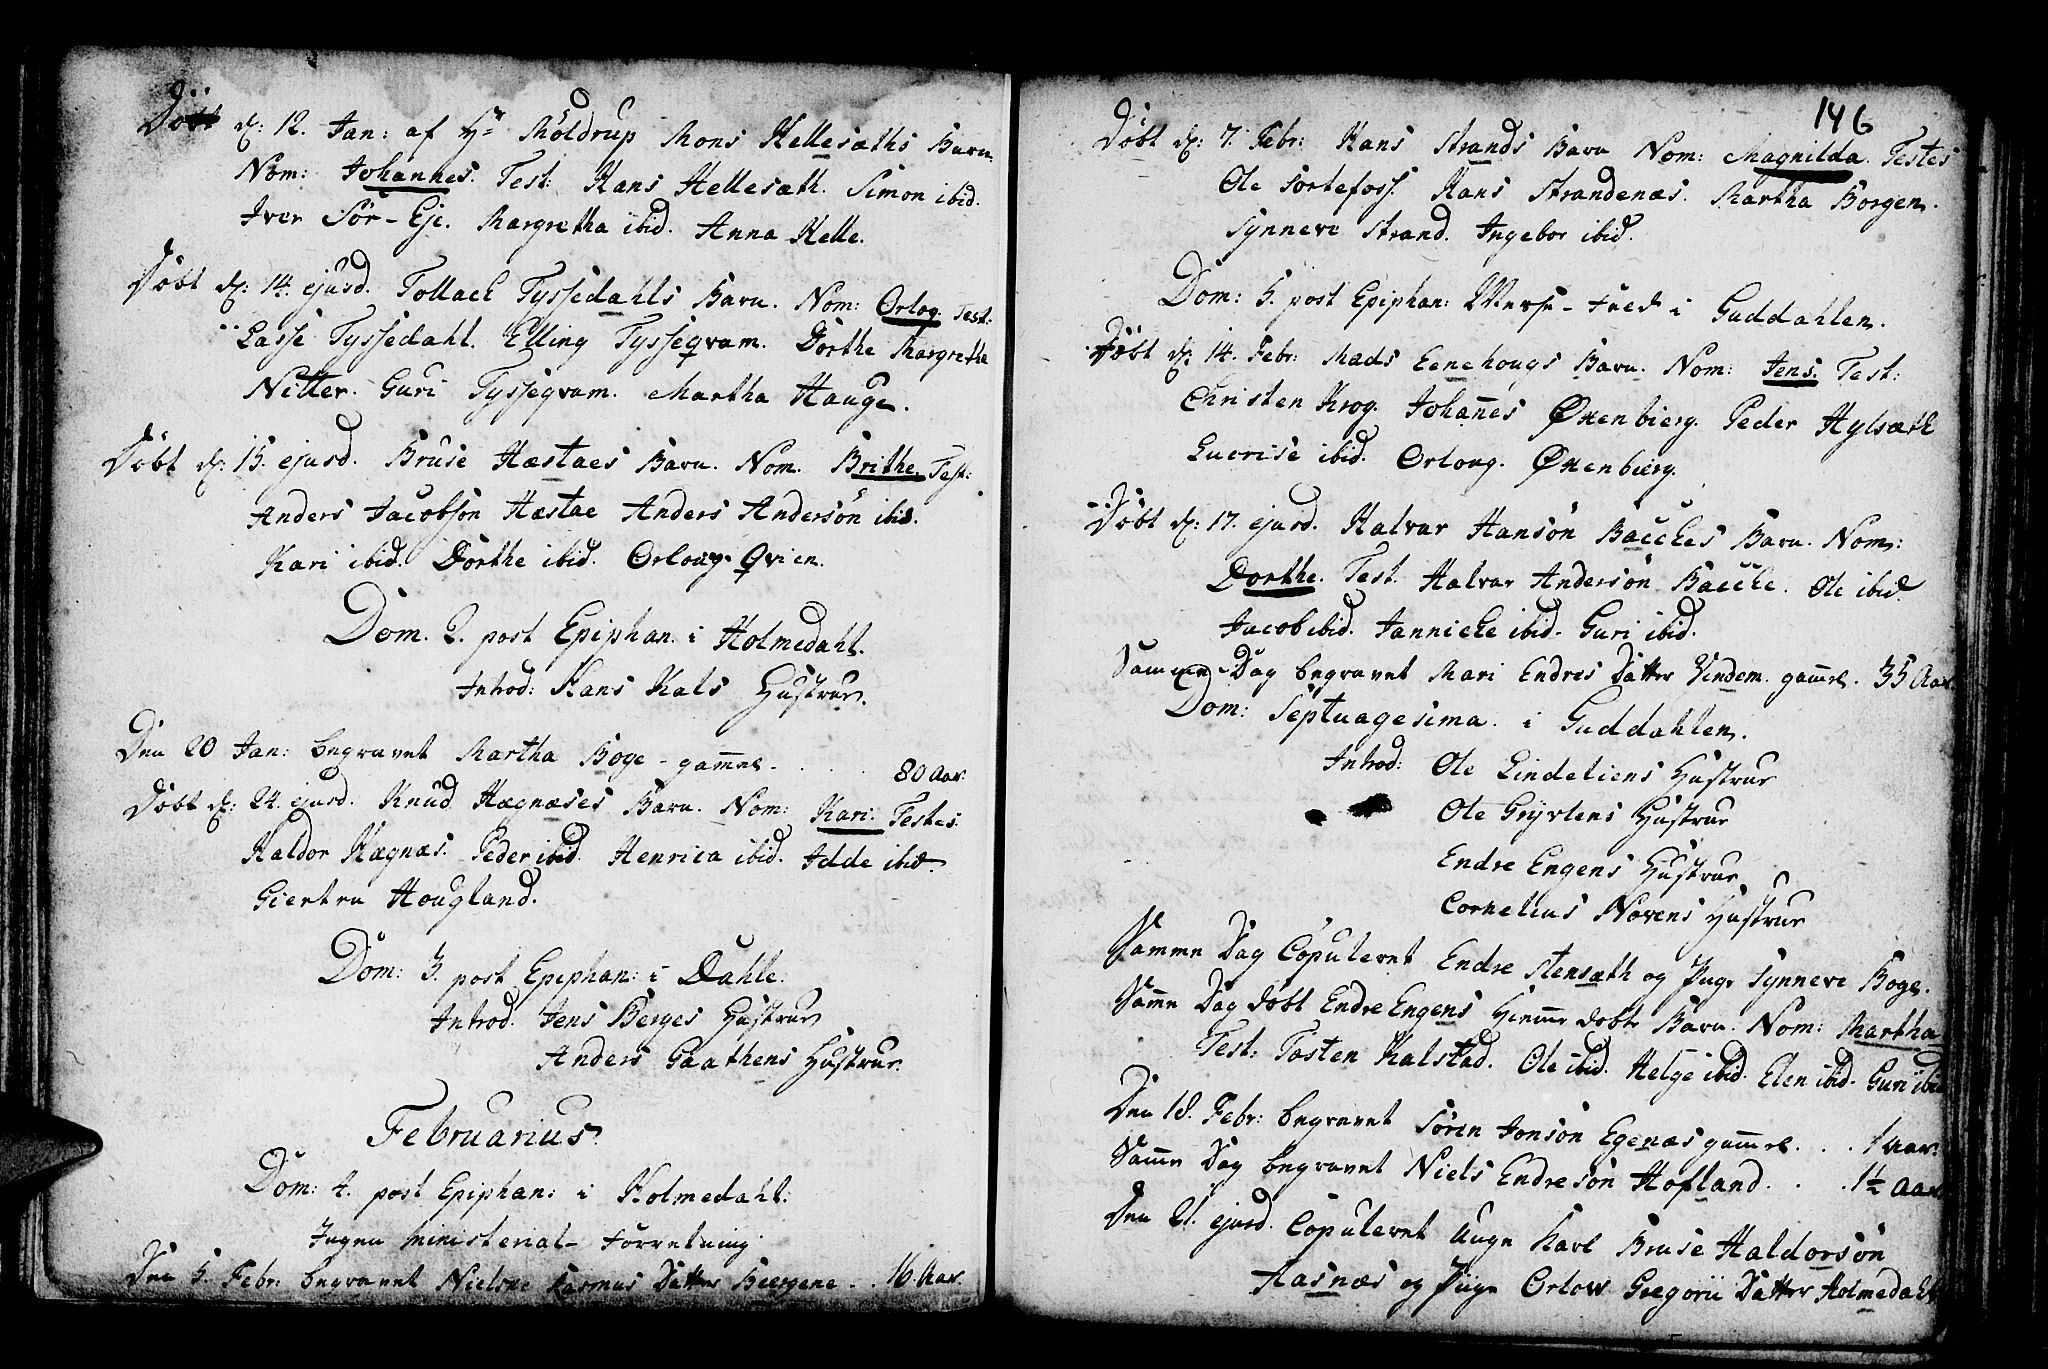 Döbt d: 12. Jan: af Hr Möldrup Mons Hellesæths Barn.
Nom: Johannes. Test: Hans Hellesæth. Simon ibid.
Iver Sör-Eje. Margretha ibid. Anna Helle.
Döbt d: 14. ejusd. Tollack Tyssedahls Barn. Nom: Orlog. Test:
Lasse Tyssedahl. Elling Tysseqvam. Dorthe Margrethe
Nitter. Guri Tysseqvam. Martha Hauge.
Döbt d: 15. ejusd. Bruse Hæstaes Barn. Nom. Brithe. Test:
Anders Jacobsön Hæstae Anders Andersön ibid.
Kari ibid. Dorthe ibid. Orloug Qvien.
Dom. 2. post Epiphan. i Holmedahl.
Introd: Hans Kals Hustrue.
Den 20 Jan: begravet Martha Boge - gam̄el - . . . 80 Aar.
Döbt d: 24. ejusd. Knud Hægnæses Barn. Nom: Kari. Testes.
Haldor Hægnæs. Peder ibid. Henrica ibid. Idde ibid.
Giertru Hougland.
Dom: 3. post Epiphan: i Dahle.
Introd. Jens Berges Hustrue
Anders Gaathens Hustrue.
Februarius.
Dom: 4. post Epiphan: i Holmedahl.
Ingen ministerial-Forretning.
Den 5. Febr: begravet Nielske Rasmus Datter Beergene . . 16 Aar.
146
Döbt d: 7. Febr: Hans Strands Barn Nom: Magnilda. Testes
Ole Sortefoss. Hans Strandenæs. Martha Borgen.
Synneve Strand. Ingebor ibid.
Dom: 5. post Epiphan: Messe-Fred i Guddahlen.
Döbt d: 14. Febr: Mads Eenehougs Barn. Nom: Jens. Test:
Christen Krog. Johan̄es Öxenbierg. Peder Hylsæth
Lucrise ibid. Orloug. Öxenbierg.
Döbt d: 17. ejusd. Halvar Hansön Bæckes Barn. Nom:
Dorthe. Test. Halvar Andersön Bæcke. Ole ibid.
Jacob ibid. Jannicke ibid. Guri ibid.
Samme Dag begravet Mari Endres Datter Vindem. gam̄el. 35 Aar.
Dom: Septuagesima. i Guddahlen.
Introd: Ole Lindeliens Hustrue
Ole Gryvlens Hustrue
Endre Engens Hustrue
Cornelius Novens Hustrue
Samme Dag Copuleret Endre Stensæth og Pige Synneve Boge.
Sam̄e Dag döbt Endre Engens Hiem̄e döbte Barn. Nom: Martha
Test: Tosten Kalstad. Ole ibid. Helge ibid. Elen ibid. Guri ibid
Den 18. Febr: begravet Sören Jonsön Egenæs gam̄el. . . 1 Aar.
Sam̄e Dag begravet Niels Endresön Hofland. . . 1½ Aar.
Den 21. ejusd. Copuleret Unge Karl Bruse Haldorsön
Aasnæs og Piige Orlow Gregorii Datter Holmedahl